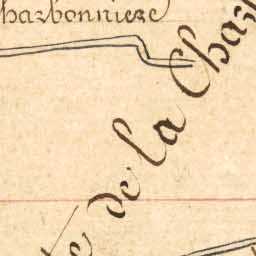 harbonniere
de la Cha